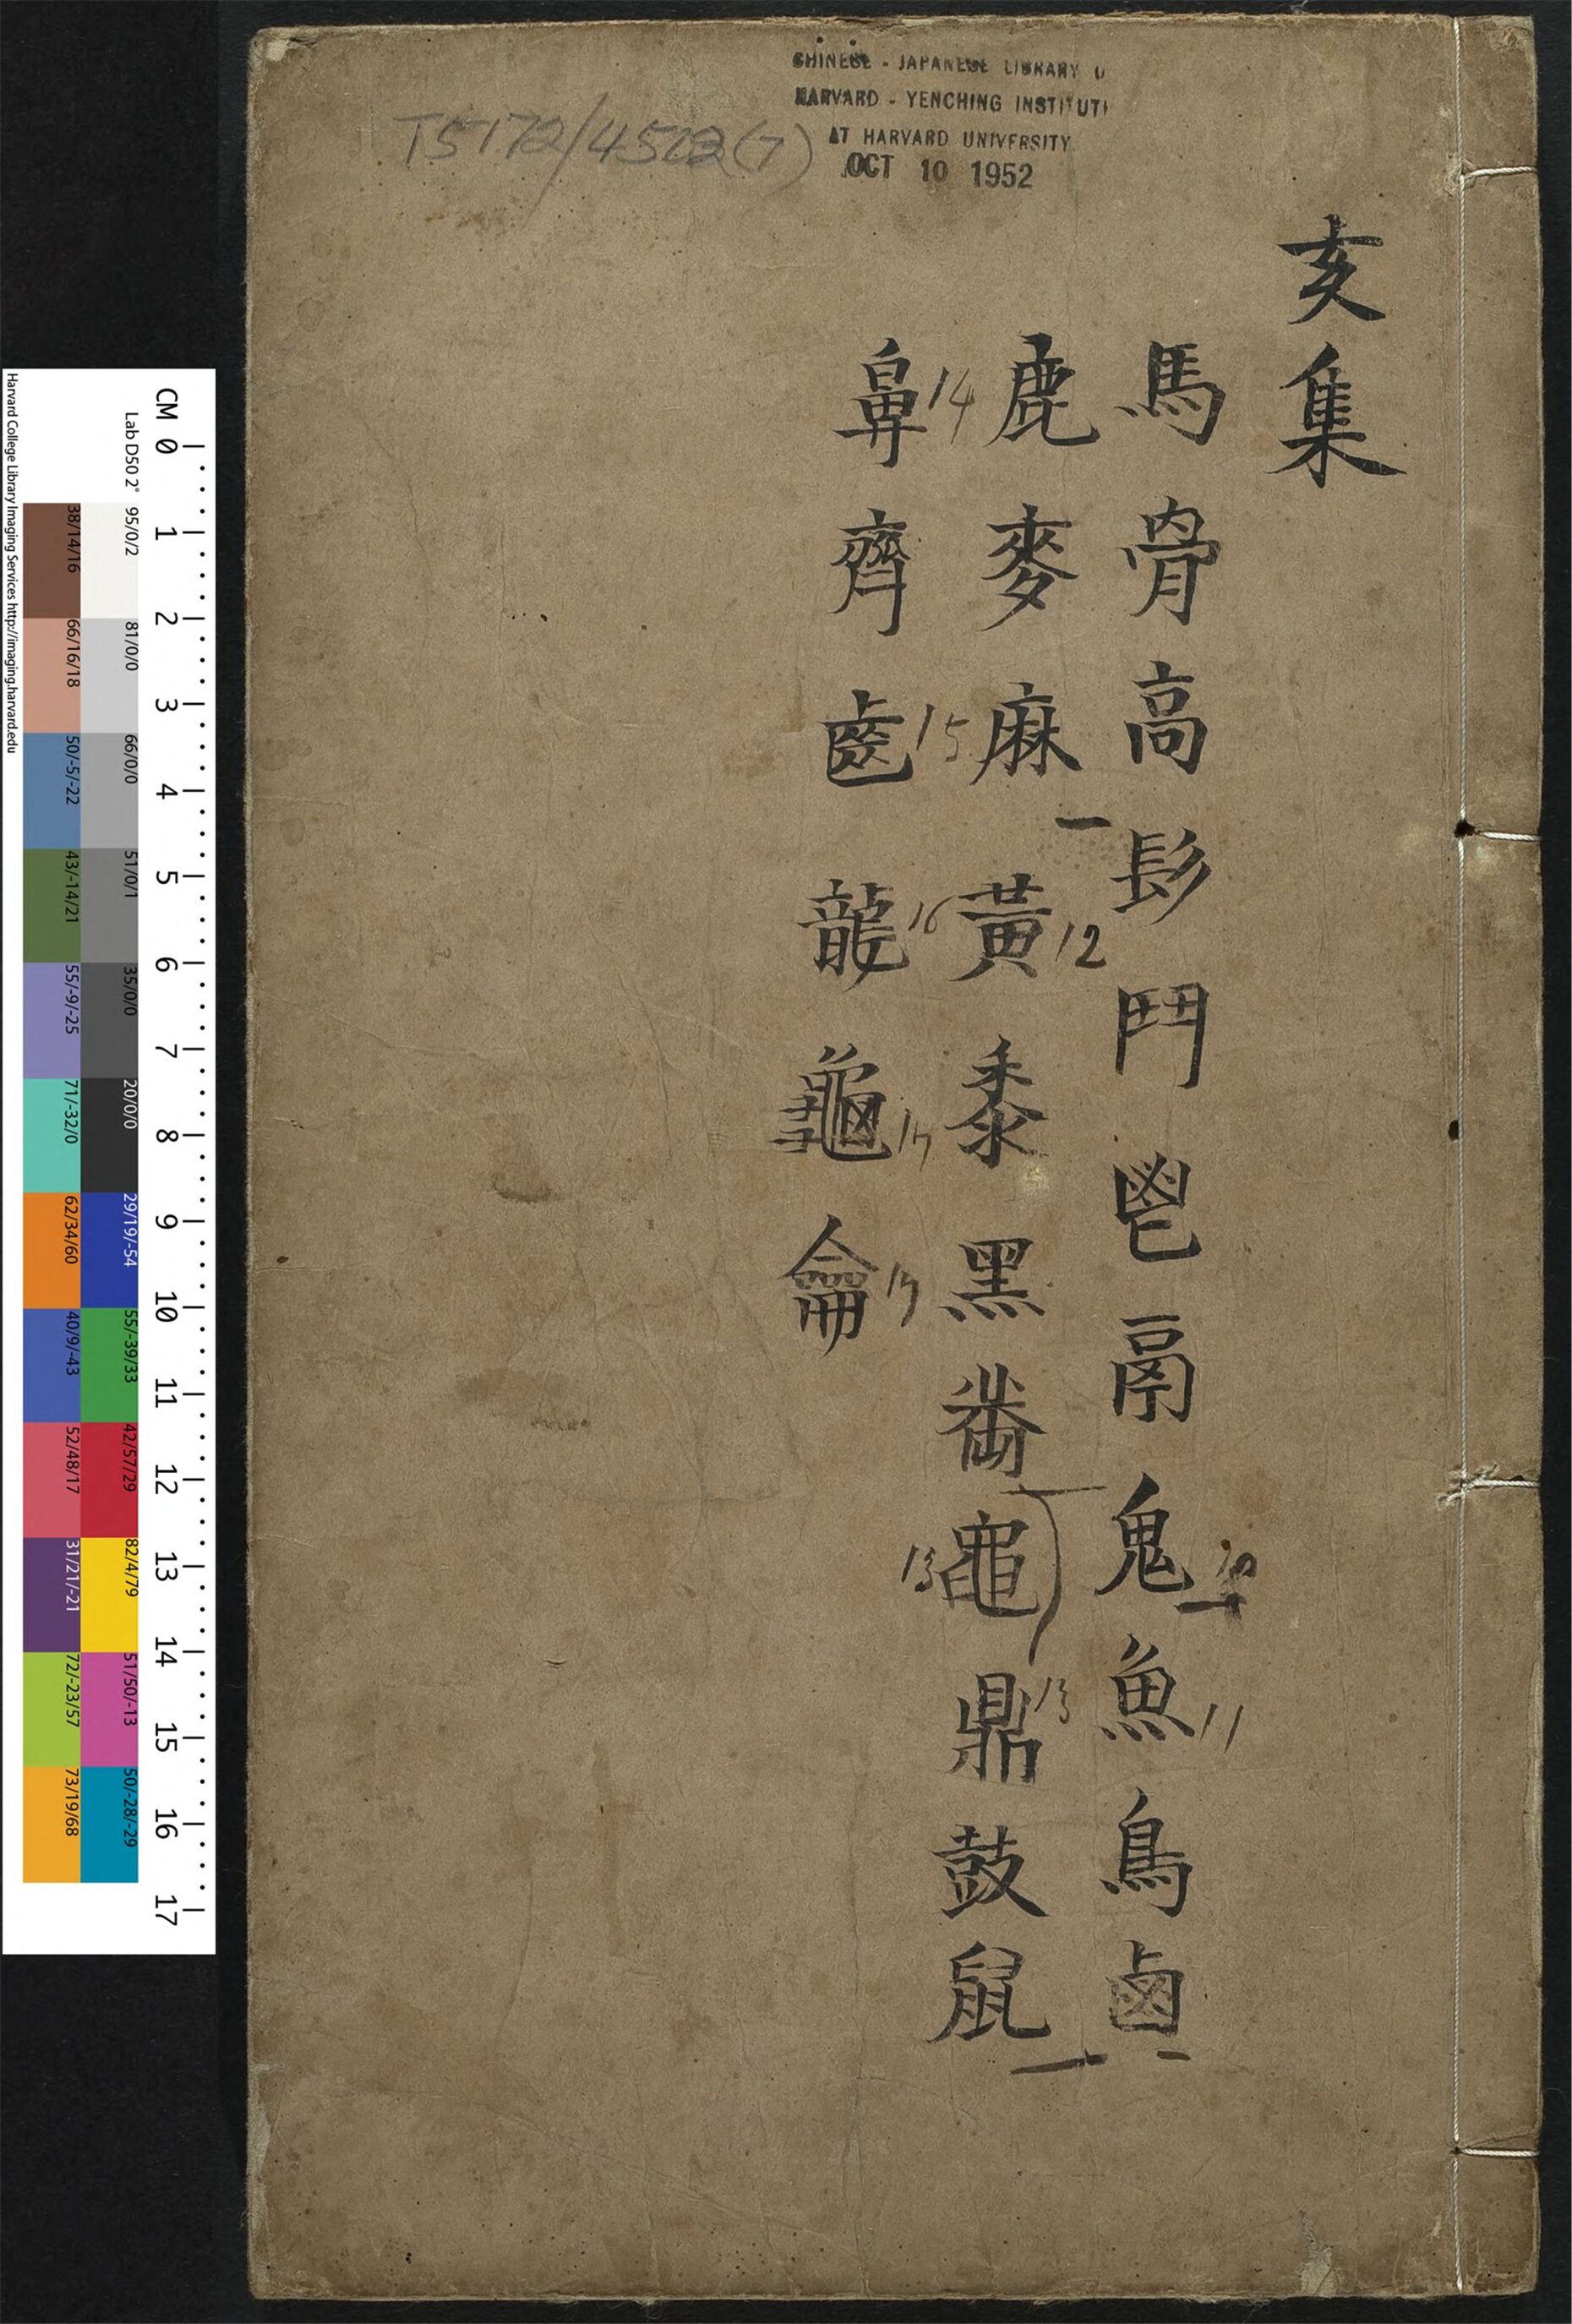 CHINESE - JAPANESE LIBRARY O
HARVARD - YENCHING INSTITUTE
AT HARVARD UNIVERSITY
OCT 10 1952
T5172/4502(7)
亥集
馬骨高髟鬥鬯鬲鬼魚11鳥鹵
鹿麥麻黃12黍黑黹黽13鼎13鼓鼠
鼻14齊齒15龍16龜17龠17
CM 0 1 2 3 4 5 6 7 8 9 10 11 12 13 14 15 16 17
Lab D50 2°
95/0/2
81/0/0
66/0/0
51/0/1
35/0/0
20/0/0
29/19/-54
55/-39/33
42/57/29
82/4/79
51/50/-13
50/-28/-29
38/14/16
66/16/18
50/-5/-22
43/-14/21
55/-9/-25
71/-32/0
62/34/60
40/9/-43
52/48/17
31/21/-21
72/-23/57
73/19/68
Harvard College Library Imaging Services http://imaging.harvard.edu